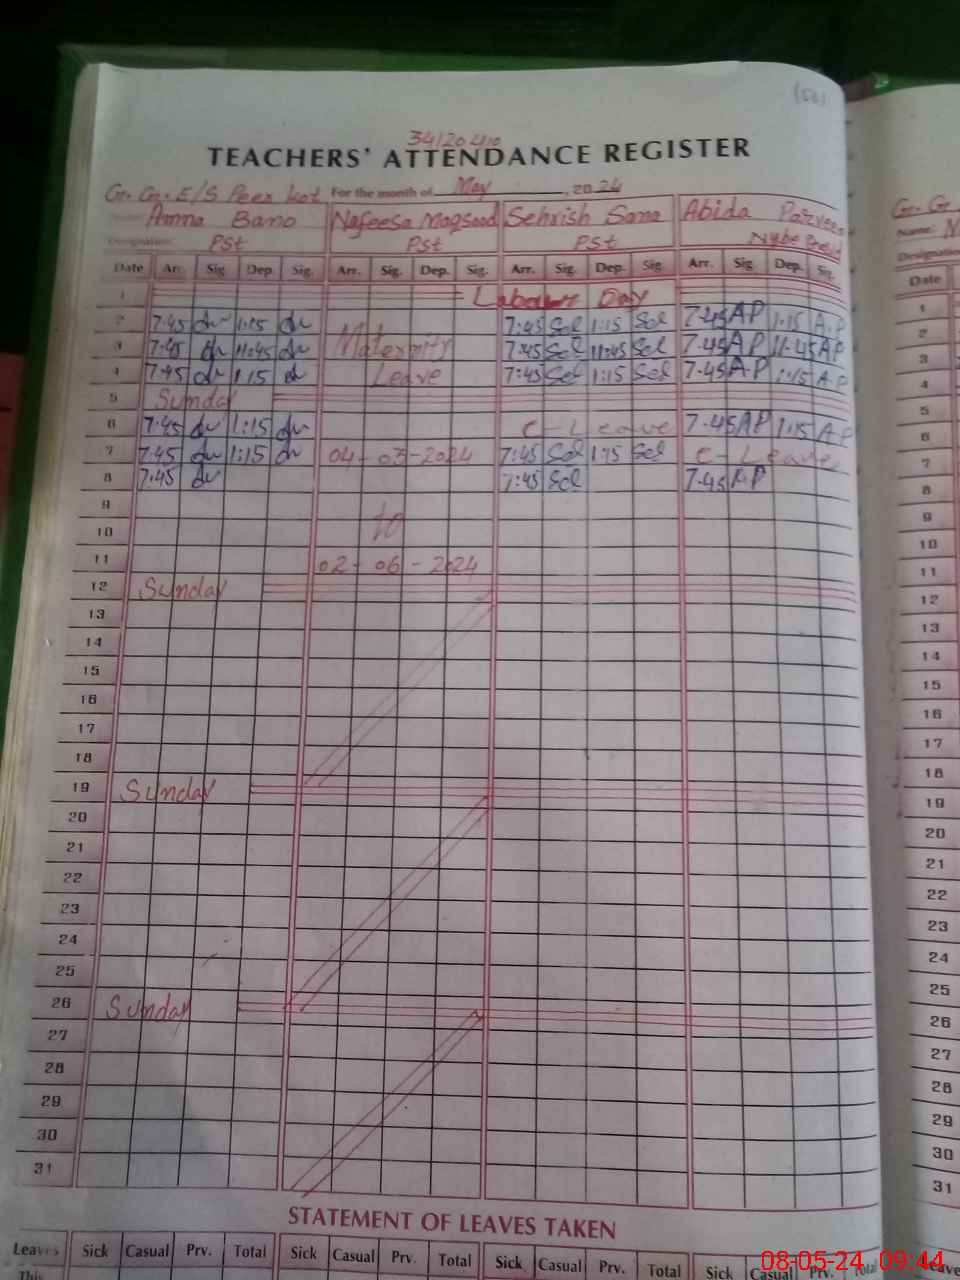 (50)
34120410
TEACHERS' ATTENDANCE REGISTER
G. G. E/S Peer kot For the month of May, 2024
Amna Bano Nafeesa Maqsood Sehrish Sana Abida Parveen
Designation: PST PST PST
Date Arr. Sig. Dep. Sig. Arr. Sig. Dep. Sig. Arr. Sig. Dep. Sig. Arr. Sig. Dep. Sig.
1 Labour Day
2 7:45 1:15 7:45 Sel 1:15 Sel 7:45 AP 1:15 A.P
3 7:45 11:45 Maternity 7:45 Sel 11:45 Sel 7:45 AP 11:45 AP
4 7:45 1:15 Leave 7:45 Sel 1:15 Sel 7:45 AP 1:15 A.P
5 Sunday
6 7:45 1:15 C-Leave 7:45 AP 1:15 AP
7 7:45 1:15 04-03-2024 7:45 Sel 1:15 Sel C-Leave
8 7:45 7:45 Sel 7:45 AP
9
10 to
11 02-06-2024
12 Sunday
13
14
15
16
17
18
19 Sunday
20
21
22
23
24
25
26 Sunday
27
28
29
30
31
STATEMENT OF LEAVES TAKEN
Leaves Sick Casual Prv. Total Sick Casual Prv. Total Sick Casual Prv. Total Sick Casual Prv. Total
This
G. G.
Name: N
Designation
Date
1
2
3
4
5
6
7
8
9
10
11
12
13
14
15
16
17
18
19
20
21
22
23
24
25
26
27
28
29
30
31
Leave
08-05-24 09:44